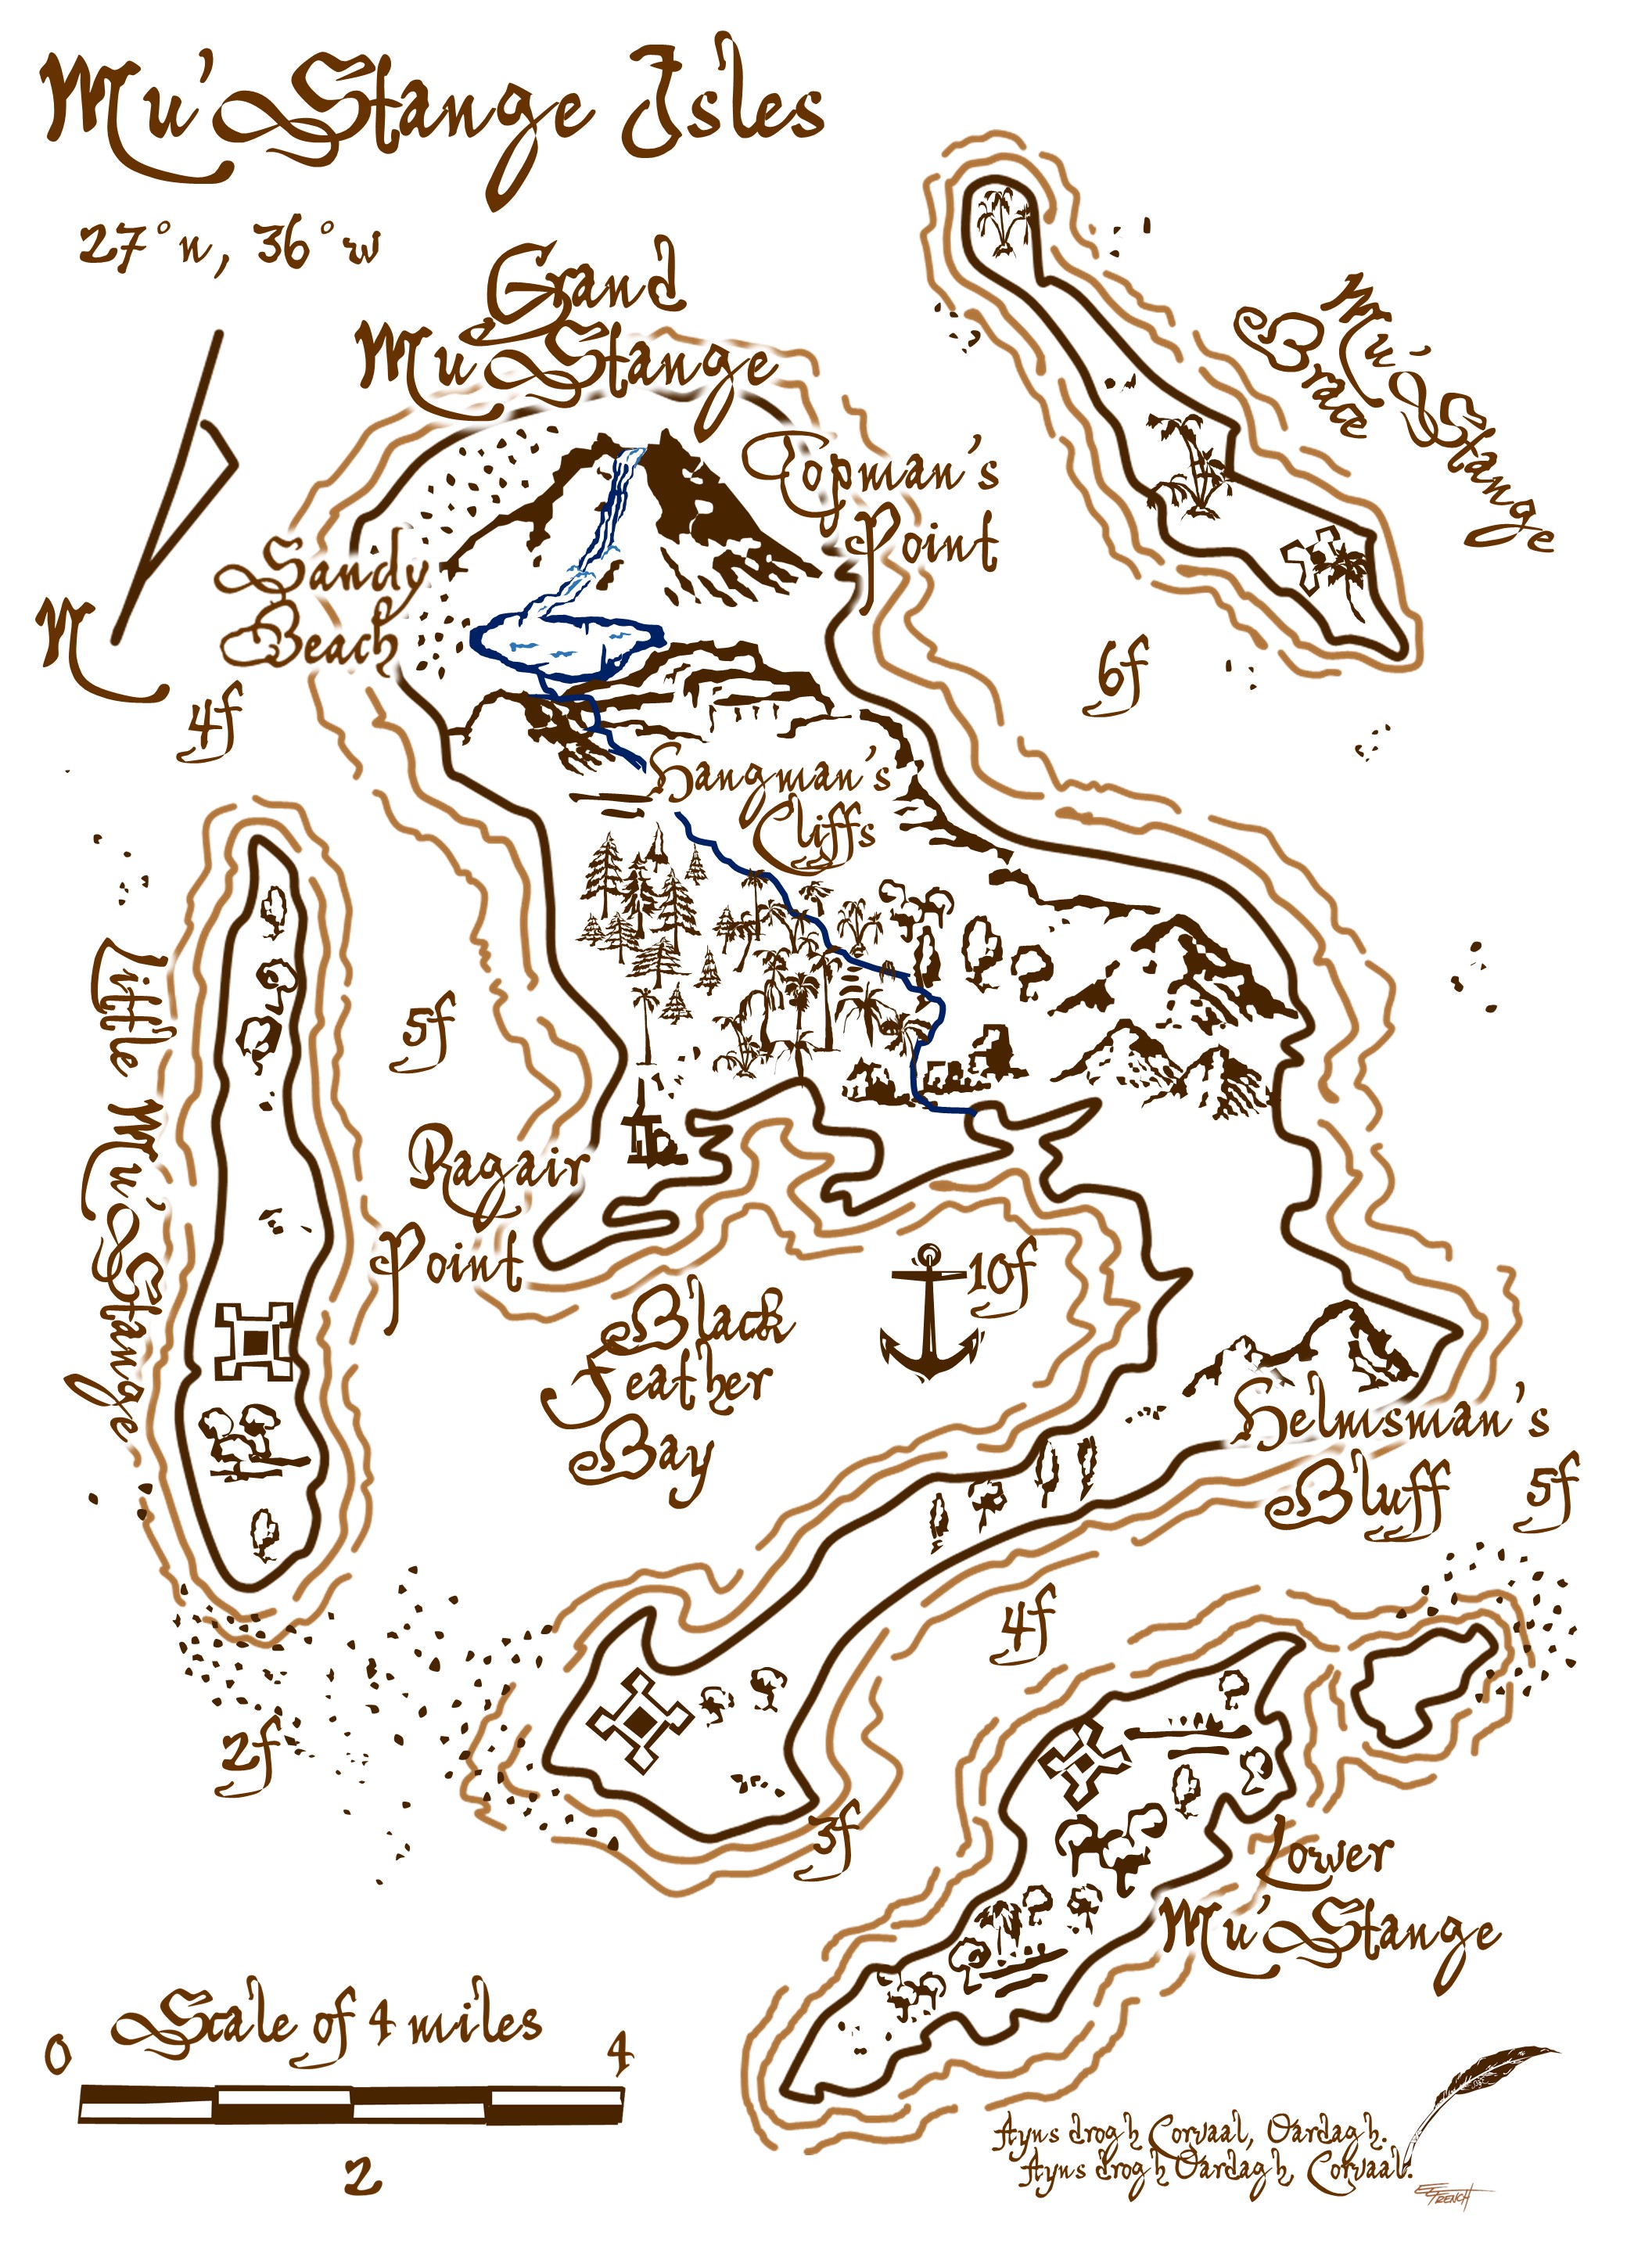 Mu'Stange Isles
27°n, 36°w
Grand
Mu'Stange
Mu'Stange
Brace
Topman's
Point
Sandy
Beach
N
4f
6f
Hangman's
Cliffs
Little Mu'Stange
5f
Ragair
Point
10f
Black
Feather
Bay
Helmsman's
Bluff
5f
4f
2f
3f
Lower
Mu'Stange
Scale of 4 miles
0
4
2
Ayns drogh Corvaal, Oardagh.
Ayns drogh Oardagh, Corvaal.
EEFRENCH